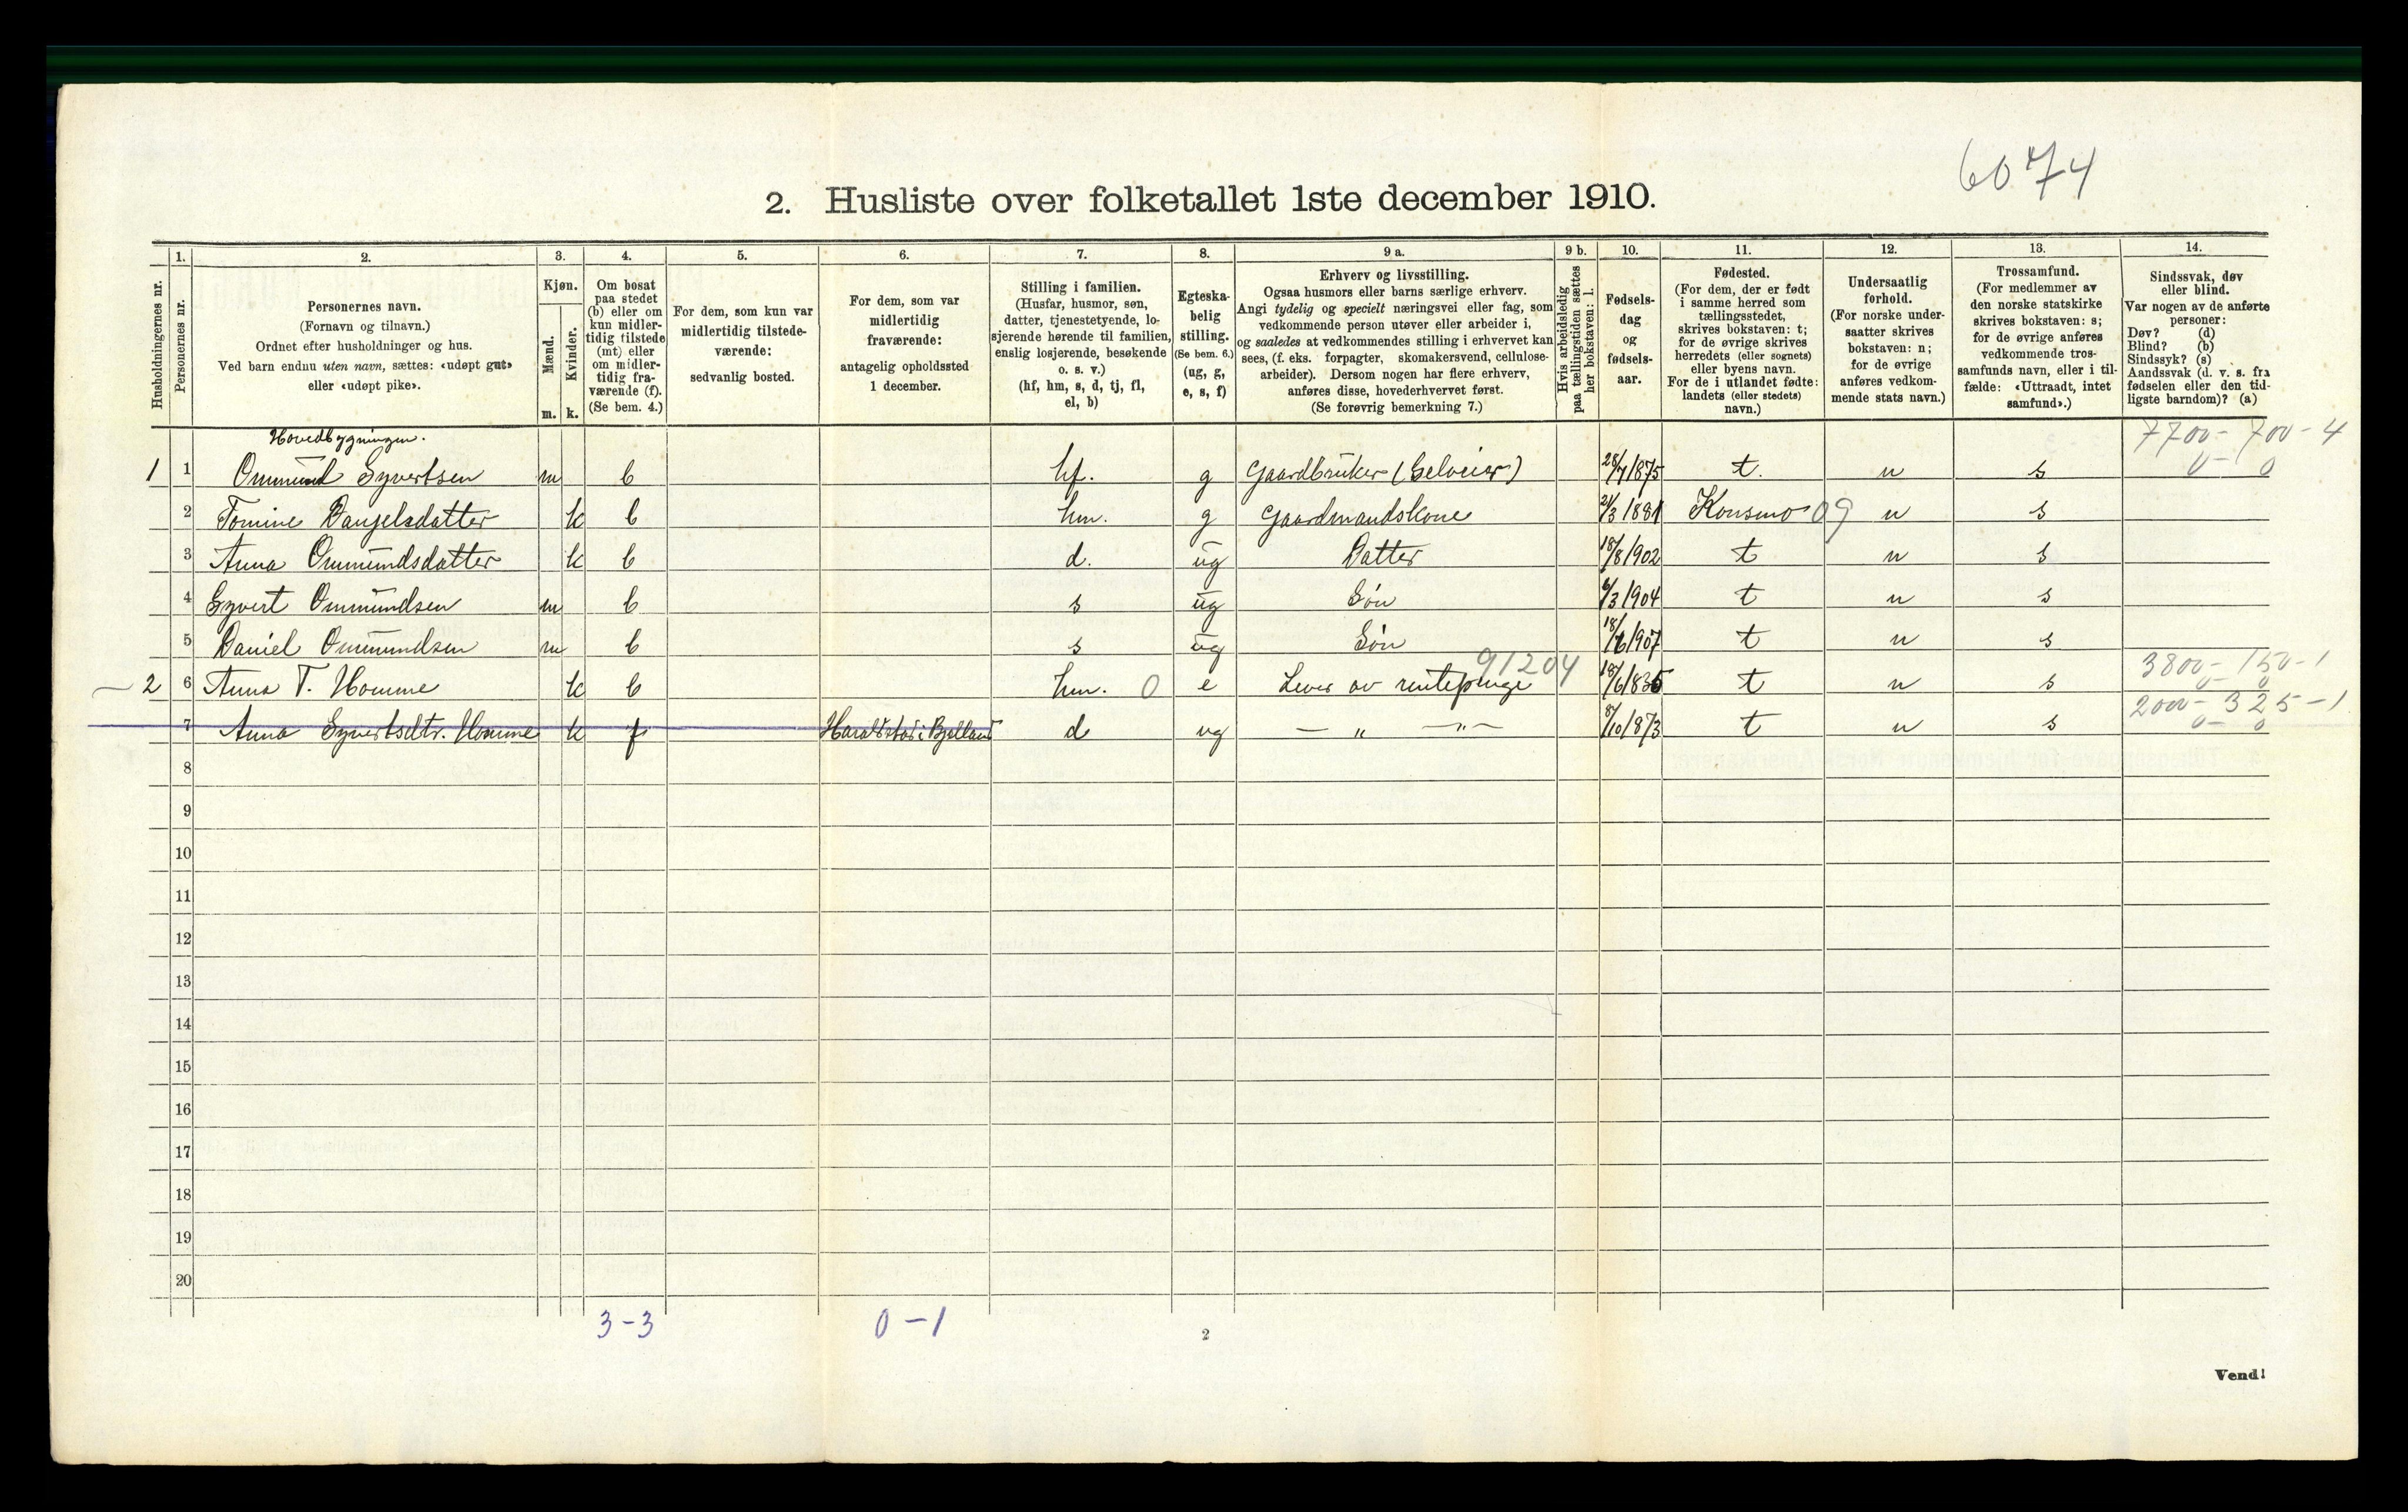 6074
2. Husliste over folketallet 1ste december 1910.
Husholdningernes nr.
1.
Personernes nr.
2.
Personernes navn.
(Fornavn og tilnavn.)
Ordnet efter husholdninger og hus.
Ved barn endnu uten navn, sættes: «udøpt gut»
eller «udøpt pike».
3.
Kjøn.
Mænd.
Kvinder.
m. k.
4.
Om bosat
paa stedet
(b) eller om
kun midler-
tidig tilstede
(mt) eller
om midler-
tidig fra-
værende (f).
(Se bem. 4.)
5.
For dem, som kun var
midlertidig tilstede-
værende:
sedvanlig bosted.
6.
For dem, som var
midlertidig
fraværende:
antagelig opholdssted
1 december.
7.
Stilling i familien.
(Husfar, husmor, søn,
datter, tjenestetyende, lo-
sjerende hørende til familien,
enslig losjerende, besøkende
o. s. v.)
(hf, hm, s, d, tj, fl,
el, b)
8.
Egteska-
belig
stilling.
(Se bem. 6.)
(ug, g,
e, s, f)
9 a.
Erhverv og livsstilling.
Ogsaa husmors eller barns særlige erhverv.
Angi tydelig og specielt næringsvei eller fag, som
vedkommende person utøver eller arbeider i,
og saaledes at vedkommendes stilling i erhvervet kan
sees, (f. eks. forpagter, skomakersvend, cellulose-
arbeider). Dersom nogen har flere erhverv,
anføres disse, hovederhvervet først.
(Se forøvrig bemerkning 7.)
9 b.
Hvis arbeidsledig
paa tællingstiden sættes
her bokstaven: l.
10.
Fødsels-
dag
og
fødsels-
aar.
11.
Fødested.
(For dem, der er født
i samme herred som
tællingsstedet,
skrives bokstaven: t;
for de øvrige skrives
herredets (eller sognets)
eller byens navn.
For de i utlandet fødte:
landets (eller stedets)
navn.)
12.
Undersaatlig
forhold.
(For norske under-
saatter skrives
bokstaven: n;
for de øvrige
anføres vedkom-
mende stats navn.)
13.
Trossamfund.
(For medlemmer av
den norske statskirke
skrives bokstaven: s;
for de øvrige anføres
vedkommende tros-
samfunds navn, eller i til-
fælde: «Uttraadt, intet
samfund».)
14.
Sindssvak, døv
eller blind.
Var nogen av de anførte
personer:
Døv? (d)
Blind? (b)
Sindssyk? (s)
Aandssvak (d. v. s. fra
fødselen eller den tid-
ligste barndom)? (a)
Hovedbygningen.
7700 - 700 - 4
0 - 0
1 1 Ommund Syvertsen m b hf. g Gaardbruker (Selveier) 28/7 1875 t. n s
2 Tomine Danjelsdatter k b hm. g Gaardmandskone 21/3 1881 Konsmo 09 n s
3 Anna Ommundsdatter k b d. ug Datter 18/8 1902 t n s
4 Syvert Ommundsen m b s ug Søn 6/3 1904 t n s
5 Daniel Ommundsen m b s ug Søn 18/6 1907 t n s
91204
3800 - 150 - 1
0 - 0
2 6 Anna T. Homme k b hm. 0 e Lever av rentepenge 18/6 1835 t n s
2000 - 325 - 1
0 - 0
7 Anna Syvertsdtr. Homme k f Haraldstad i Bjelland d ug — „ — „ — 8/10 1873 t n s
8
9
10
11
12
13
14
15
16
17
18
19
20
3 - 3 0 - 1
2
Vend!